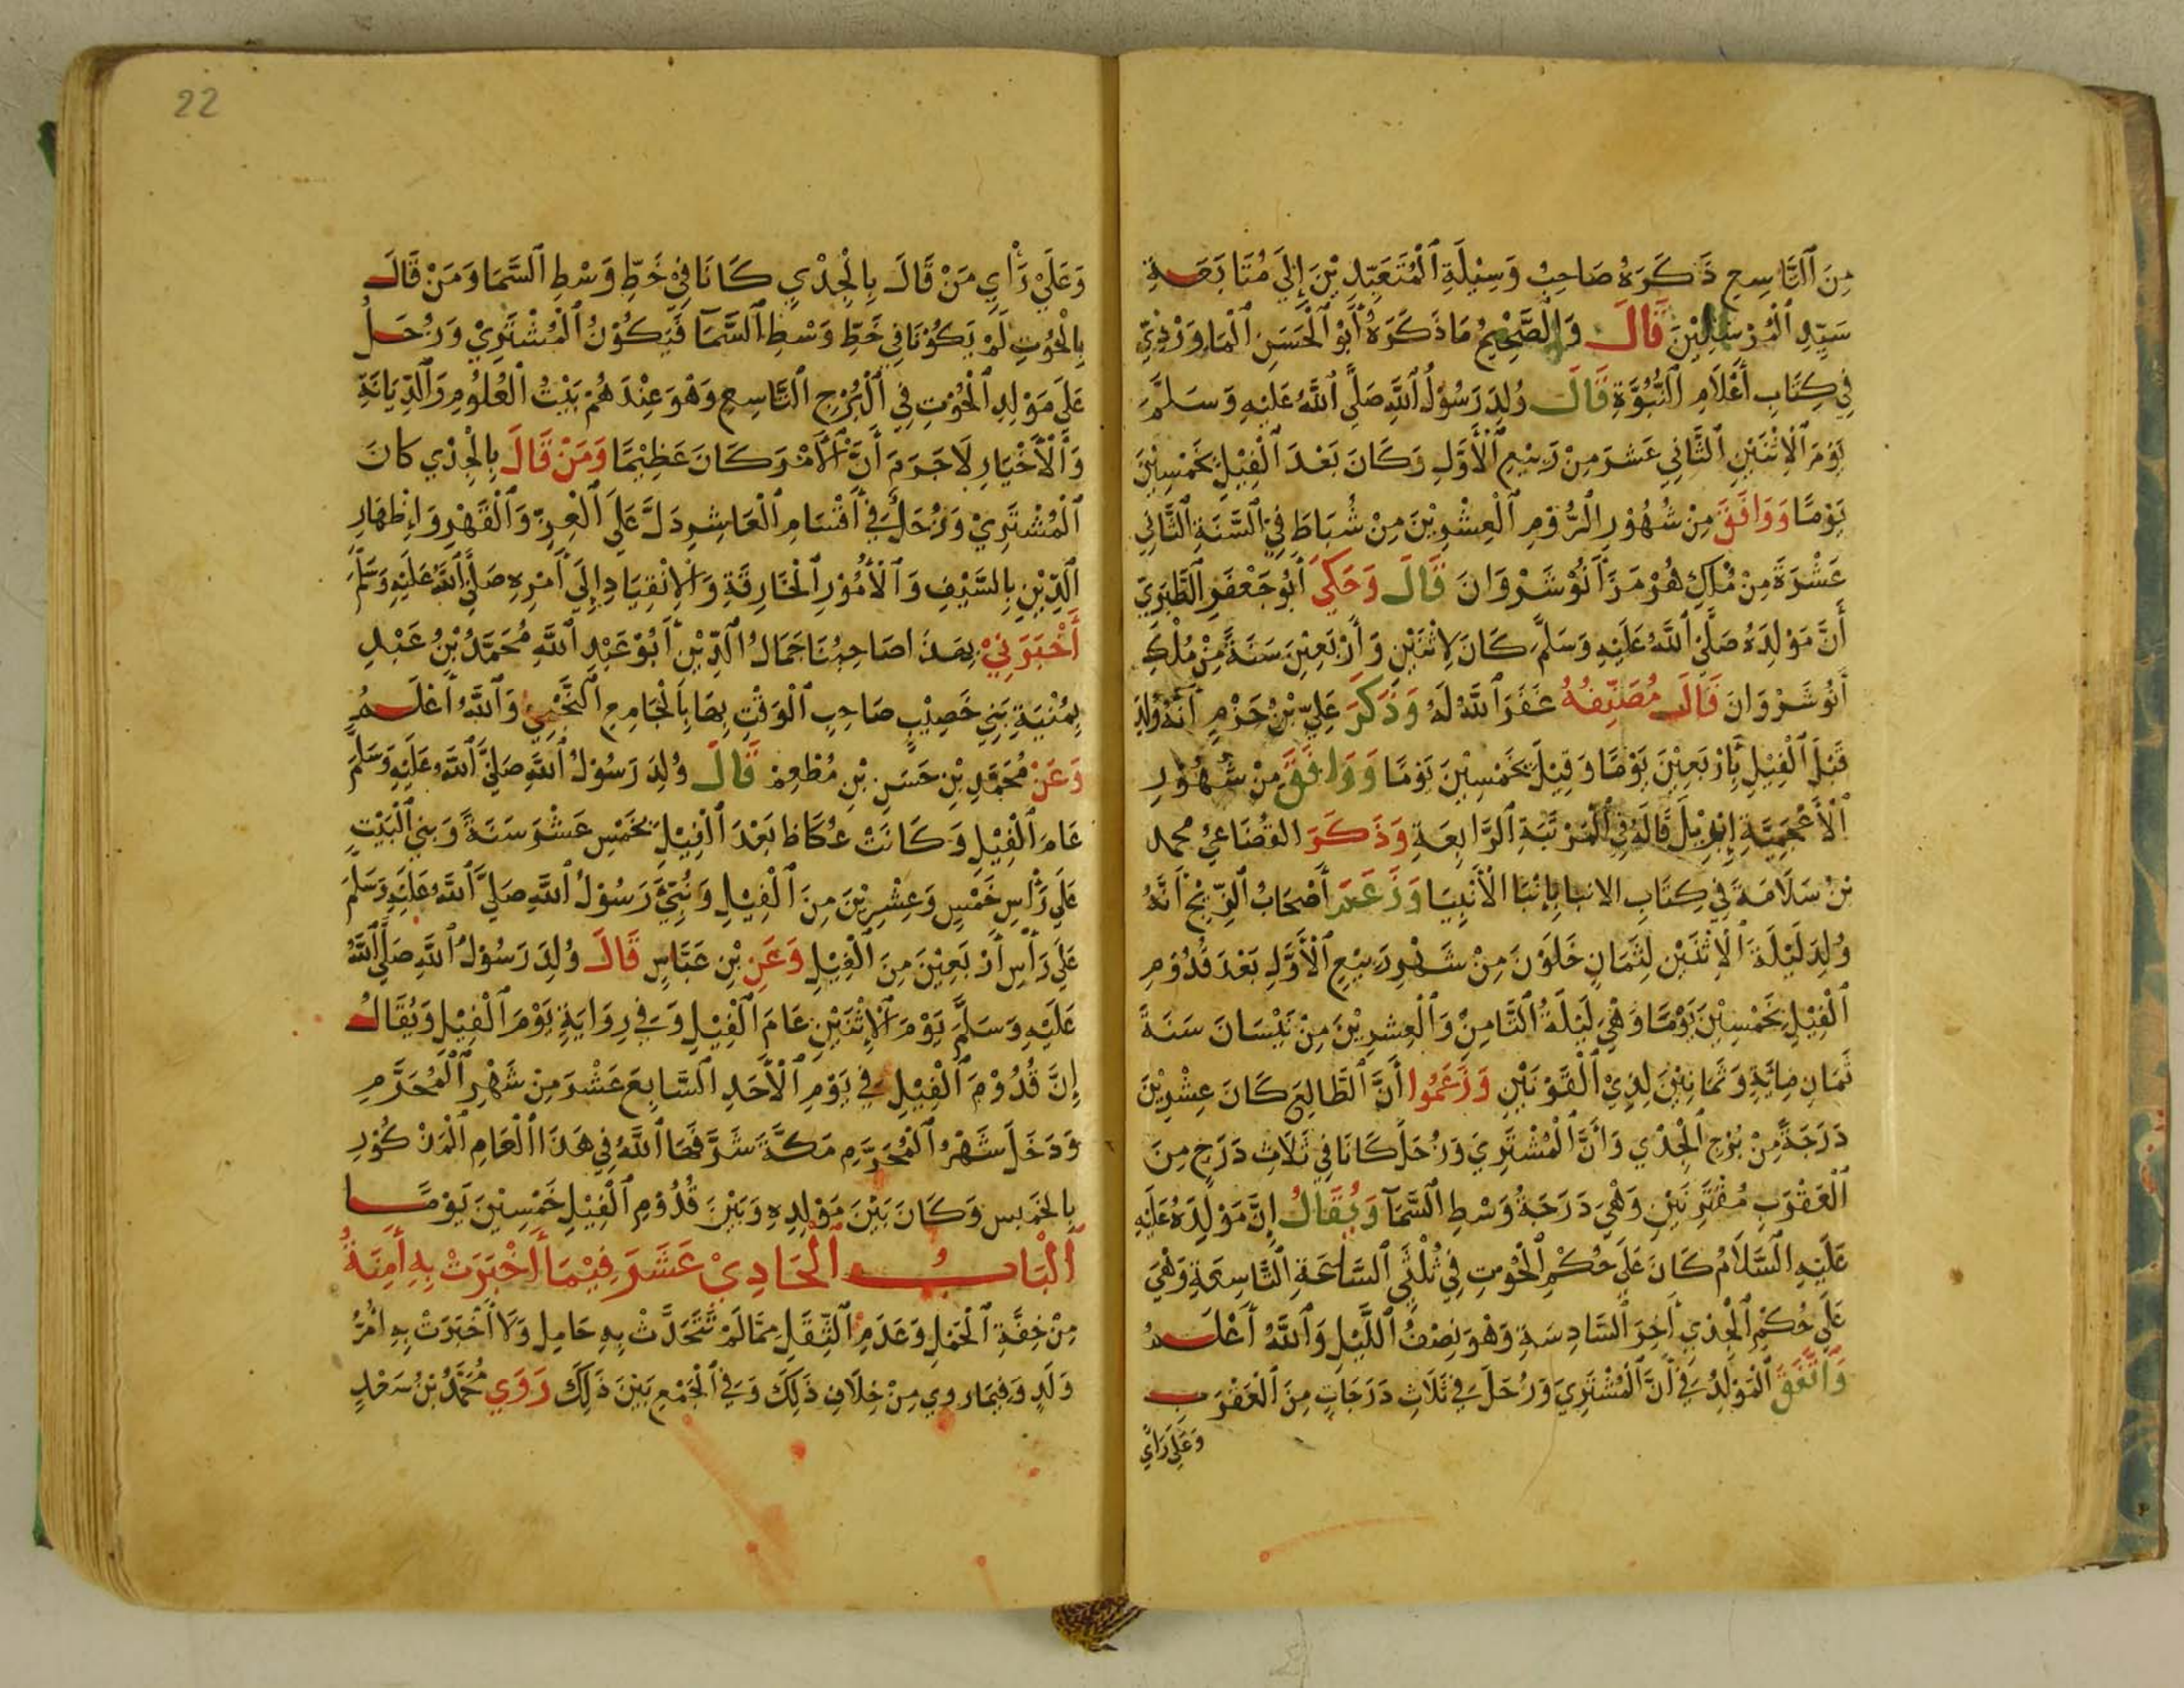 مِنَ ٱلتَّاسِعِ ذَكَرَهُ صَاحِبُ وَسِيْلَةِ ٱلْمُتَعَبِّدِيْنَ إِلَي مُتَابَعَةِ
سَيِّدِ ٱلْمُرْسَلِيْنَ قَالَ وَٱلصَّحِيْحُ مَا ذَكَرَهُ أَبُو ٱلْحَسَنِ ٱلْمَاوَرْدِيّ
فِي كِتَابِ أَعْلَامِ ٱلنُّبُوَّةِ قَالَ وُلِدَ رَسُوْلُ ٱللَّهِ صَلَّي ٱللَّهُ عَلَيْهِ وَسَلَّمَ
يَوْمَ ٱلْاِثْنَيْنِ ٱلثَّانِي عَشَرَ مِنْ رَبِيْعِ ٱلْأَوَّلِ وَكَانَ بَعْدَ ٱلْفِيْلِ بِخَمْسِيْنَ
يَوْمًا وَوَافَقَ مِنْ شُهُوْرِ ٱلرُّوْمِ ٱلْعِشْرِيْنَ مِنْ شُبَاطَ فِيْ ٱلسَّنَةِ ٱلثَّانِي
عَشْرَةَ مِنْ مُلْكِ هُرْمَزَ أَنُوْشَرْوَانَ قَالَ وَحَكَي أَبُو جَعْفَرِ ٱلطَّبَرِيّ
أَنَّ مَوْلِدَهُ صَلَّي ٱللَّهُ عَلَيْهِ وَسَلَّمَ كَانَ لِاثْنَيْنِ وَأَرْبَعِيْنَ سَنَةً مِنْ مُلْكِ
أَنُوشَرْوَانَ قَالَ مُصَنِّفُهُ غَفَرَ ٱللَّهُ لَهُ وَذَكَرَ عَلِيُّ بْنُ حَزْمٍ أَنَّهُ وُلِدَ
قَبْلَ ٱلْفِيْلِ بِأَرْبَعِيْنَ يَوْمًا وَقِيْلَ بِخَمْسِيْنَ يَوْمًا وَوَافَقَ مِنْ شُهُوْرِ
ٱلْأَعْجَمِيَّةِ إِبْرِيْلَ قَالَهُ فِي ٱلْمَرْتَبَةِ ٱلرَّابِعَةِ وَذَكَرَ القُضَاعِيُ محمد
بْنُ سَلَامَةَ فِي كِتَابِ الانبا بِإِنْبَا ٱلْأَنْبِيَا وَزَعَمَ أَصْحَابُ ٱلزِّيْجِ أَنَّهُ
وُلِدَ لَيْلَةَ ٱلْاِثْنَيْنِ لِثَمَانٍ خَلَوْنَ مِنْ شَهْرِ رَبِيْعِ ٱلْأَوَّلِ بَعْدَ قُدُوْمِ
ٱلْفِيْلِ بِخَمْسِيْنَ يَوْمًا وَهْيَ لَيْلَةُ ٱلثَّامِنْ وَٱلْعِشْرِيْنَ مِنْ نَيْسَانَ سَنَةَ
ثَمَانِ مِائَةٍ وَثَمَانِيْنَ لِذِيْ ٱلْقَرْنَيْنِ وَزَعَمُوا أَنَّ ٱلطَّالِعَ كَانَ عِشْرِيْنَ
دَرَجَةً مِنْ بُرْجِ ٱلْجِدْي وَأَنَّ ٱلْمُشْتَرِيَ وَزُحَلَ كَانَا فِي ثَلَاثِ دَرَجٍ مِنَ
ٱلْعَقْرَبِ مُقْتَرِنَيْنِ وَهْيَ دَرَجَةُ وَسْطِ ٱلسَّمَآ وَيُقَالُ إِنَّ مَوْلِدَهُ عَلَيْهِ
عَلَيْهِ ٱلسَّلَامُ كَانَ عَلَي حُكْمِ ٱلْحُوْتِ فِي ثُلْثَي ٱلسَّاعَةِ ٱلتَّاسِعَةِ وَهْيَ
عَلَي حُكْمِ ٱلْجِدْي أَخِرَ ٱلسَّادِسَةِ وَهْوَ نِصْفُ ٱللَّيْلِ وَٱللَّهُ أَعْلَمُ
وَٱتَّفَقَ ٱلْمَوْلِدُ فِي أَنَّ ٱلْمُشْتَرِيَ وَزُحَلَ فِي ثَلَاثِ دَرَجَاتٍ مِنَ ٱلْعَقْرَبِ
وَعَلَي رَأي
22
وَعَلَيْ رَأْيِ مَنْ قَالَ بِالْجِدْيِ كَانَا فِيْ خَطِّ وَسْطِ ٱلسَّمَا وَمَنْ قَالَ
بِالْحُوْتِ لَمْ يَكُوْنَا فِي خَطِّ وَسْطِ ٱلسَّمَآ فَيَكُوْنُ ٱلْمُشْتَرِيْ وَزُحَلُ
عَلَي مَوْلِدِ ٱلْحُوْتِ فِي ٱلْبُرْجِ ٱلتَّاسِعِ وَهْوَ عِنْدَهُمْ بَيْتُ ٱلْعُلُوْمِ وَٱلدِّيَانَةِ
وَٱلْأَخْيَارِ لَا جَرَمَ أَنَّ ٱلْأَمْرَ كَانَ عَظِيْمًا وَمَنْ قَالَ بِالْجِدْي كانَ
ٱلْمُشْتَرِيْ وَزُحَلُ فِي أَقْسَامِ ٱلْعَاشِرِ دَلَّ عَلَي ٱلْعِزِّ وَٱلْقَهْرِ وَإِظْهَارِ
ٱلدِّيْنِ بِالسَّيْفِ وَٱلْأُمُوْرِ ٱلْخَارِقَةِ وَٱلِانْقِيَادِ إِلَي أَمْرِهِ صَلَّي ٱللَّهُ عَلَيْهِ وَسَلَّمَ
أَخْبَرَنِيْ بِهَذَا صَاحِبُنَا جَمَالُ ٱلدِّيْنِ أَبُوْ عَبْدِ ٱللَّهِ مُحَمَّدُ بْنُ عَبْدِ
بِمُنْيَةِ بَنِي خَصِيْبٍ صَاحِبِ ٱلْوَقْتِ بِهَا بِالْجَامِعِ ٱللَّخْمِيُّ وَٱللَّهُ أَعْلَمُ
وَعَنْ مُحَمَّدِ بْنِ حَسَنِ بْنِ مُطْعِمٍ قَالَ وُلِدَ رَسُوْلُ ٱللَّهِ صَلَّيَ ٱللَّهُ عَلَيْهِ وَسَلَّمَ
عَامَ ٱلْفِيْلِ وَكَانَتْ عُكَاظ بَعْدَ ٱلْفِيْلِ بِخَمْسِ عَشْرَ سَنَةً وَبُنِي ٱلْبَيْتِ
عَلَي رَأْسِ خَمْسٍ وَعِشْرِيْنَ مِنَ ٱلْفِيْلِ وَنُبِّيَ رَسُوْلُ ٱللَّهِ صَلَّيَ ٱللَّهُ عَلَيْهِ وَسَلَّمَ
عَلَي رَأْسِ أَرْبَعِيْنَ مِنَ ٱلْفِيْلِ وَعَنِ بْنِ عَبَّاسٍ قَالَ وُلِدَ رَسُوْلُ ٱللَّهِ صَلَّي ٱللَّهُ
عَلَيْهِ وَسَلَّمَ يَوْمَ ٱلْاِثْنَيْنِ عَامَ ٱلْفِيْلِ وَفِي رِوَايَةٍ يَوْمَ ٱلْفِيْلِ وَيُقَالُ
إِنَّ قُدُوْمَ ٱلْفِيْلِ فِي يَوْمِ ٱلْأَحَدِ ٱلسَّابِعَ عَشْرَ مِنْ شَهْرِ ٱلْمُحَرَّمِ
وَدَخَلَ شَهْرُ ٱلْمُحَرَّمِ مَكَّةَ شَرَّفَهَا ٱللَّهُ فِي هَذَا ٱلْعَامِ ٱلْمَذْكُوْرِ
بِالخَمِيس وَكَانَ بَيْنَ مَوْلِدِهِ وَبَيْنَ قُدُوْمِ ٱلْفِيْلِ خَمْسِيْنَ يَوْمًا
ٱلْبَابُ ٱلْحَادِيْ عَشَرَ فِيْمَا أَخْبَرَتْ بِهِ أَمِنَةُ
مِنْ خِفَّةِ ٱلْحَمْلِ وَعَدَمِ ٱلثِّقَلِ مِمَّا لَمْ تَتَحَدَّثْ بِهِ حَامِل وَلَا أَخْبَرَتْ بِهِ أُمُّ
وَلَدٍ وَفِيمَا روي مِنْ خِلَافِ ذَلِكَ وَفِي ٱلْجَمْعِ بَيْنَ ذَلِكَ رَوَي مُحَمَّدُ بْنُ سَعْدٍ